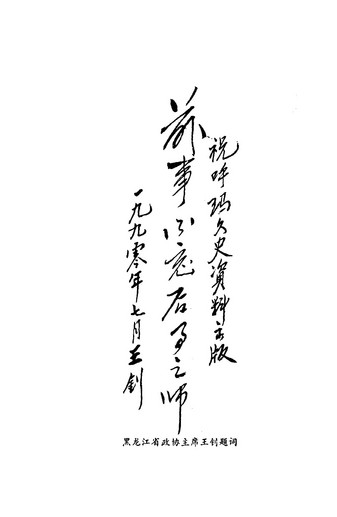 祝呼玛文史资料出版
前事不忘后事之师
一九九零年七月王钊
黑龙江省政协主席王钊题词